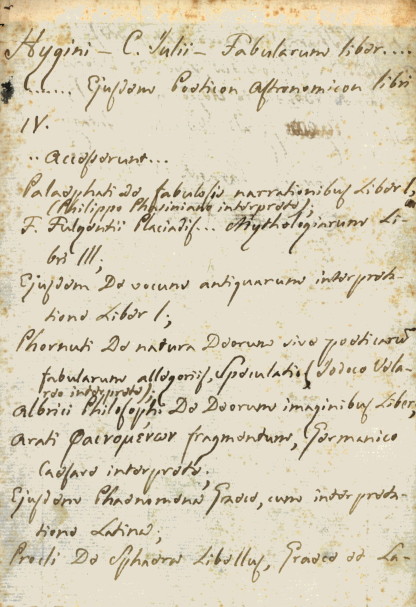 Hygini – C. Iulii – Fabularum liber....
...... Ejusdem Poeticon Astronomicon libri
IV.
.. accesserunt...
Palaephati de fabulosis narrationibus Liber I,
(Philippo Phasiniano interprete);
F. Fulgentii Placiadis... Mythologiarum Li-
bri III;
Ejusdem De vocum antiquarum interpreta-
tione Liber I;
Phornuti De natura Deorum sive poeticarum
fabularum allegoriis, Speculatio, Jodoco Vela-
reo interprete);
Albrici Philosophi De Deorum imaginibus Liber,
Arati φαινομένων fragmentum, Germanico
Caesare interprete;
Ejusdem Phaenomena Graece, cum interpreta-
tione Latina;
Procli De Sphaera Libellus, Graece et La-